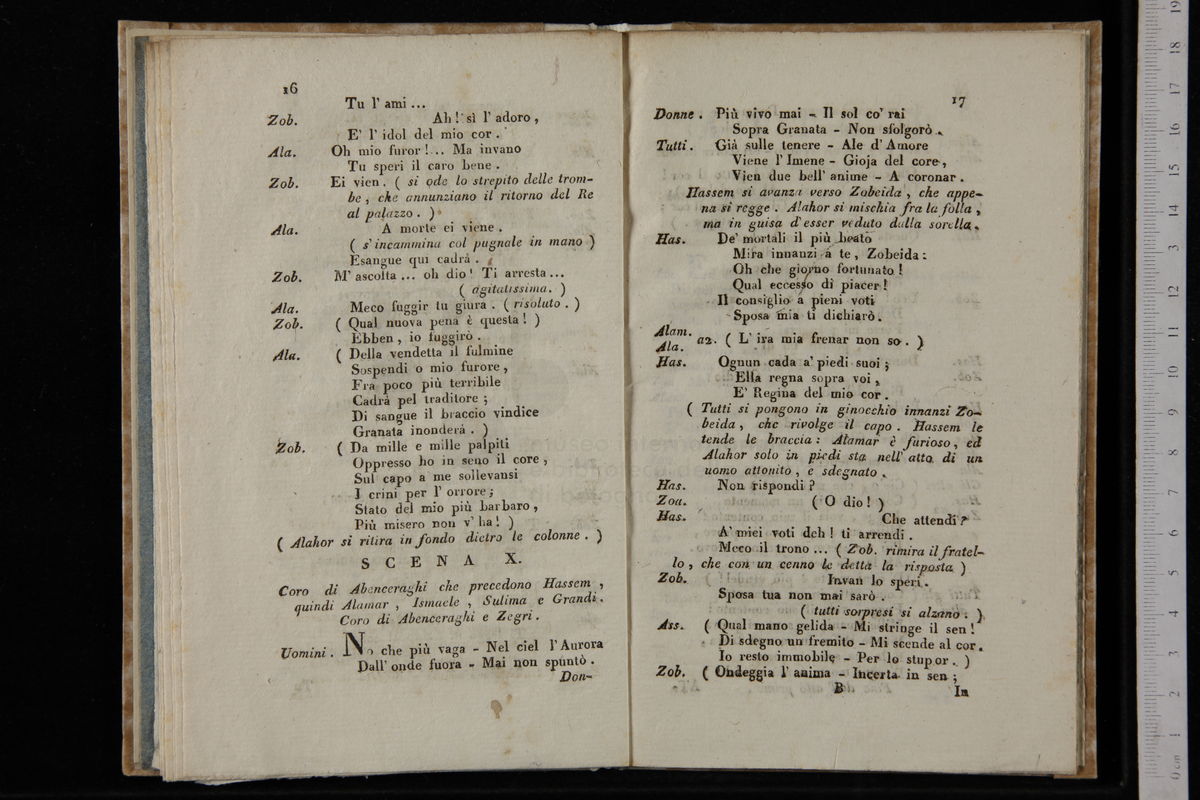 16
Tu l' ami ...
Zob. Ah! sì l' adoro ,
E' l' idol del mio cor .
Ala. Oh mio furor ! .. Ma invano
Tu speri il caro bene .
Zob. Ei vien . ( si ode lo strepito delle trom-
be , che annunziano il ritorno del Re
al palazzo . )
Ala. A morte ei viene .
( s' incammina col pugnale in mano )
Esangue qui cadrà .
Zob. M' ascolta ... oh dio ! Ti arresta ...
( agitatissima . )
Ala. Meco fuggir tu giura . ( risoluto . )
Zob. ( Qual nuova pena è questa ! )
Ebben , io fuggirò .
Ala. ( Della vendetta il fulmine
Sospendi o mio furore ,
Fra poco più terribile
Cadrà pel traditore ;
Di sangue il braccio vindice
Granata inonderà . )
Zob. ( Da mille e mille palpiti
Oppresso ho in seno il core ,
Sul capo a me sollevansi
I crini per l' orrore ;
Stato del mio più barbaro ,
Più misero non v' ha ! )
( Alahor si ritira in fondo dietro le colonne . )
SCENA X.
Coro di Abenceraghi che precedono Hassem ,
quindi Alamar , Ismaele , Sulima e Grandi .
Coro di Abenceraghi e Zegri .
Uomini . No che più vaga - Nel ciel l' Aurora
Dall' onde fuora - Mai non spuntò .
Don-
17
Donne . Più vivo mai - Il sol co' rai
Sopra Granata - Non sfolgorò .
Tutti . Già sulle tenere - Ale d' Amore
Viene l' Imene - Gioja del core ,
Vien due bell' anime - A coronar .
Hassem si avanza verso Zobeida , che appe-
na si regge . Alahor si mischia fra la folla ,
ma in guisa d' esser veduto dalla sorella .
Has. De' mortali il più beato
Mira innanzi a te , Zobeida :
Oh che giorno fortunato !
Qual eccesso di piacer !
Il consiglio a pieni voti
Sposa mia ti dichiarò .
Alam.
Ala. a2. ( L' ira mia frenar non so . )
Has. Ognun cada a' piedi suoi ;
Ella regna sopra voi ,
E' Regina del mio cor .
( Tutti si pongono in ginocchio innanzi Zo-
beida , che rivolge il capo . Hassem le
tende le braccia : Alamar è furioso , ed
Alahor solo in piedi sta nell' atto di un
uomo attonito , e sdegnato .
Has. Non rispondi ?
Zoa. ( O dio ! )
Has. Che attendi ?
A' miei voti deh ! ti arrendi .
Meco il trono ... ( Zob. rimira il fratel-
lo , che con un cenno le detta la risposta )
Zob. Invan lo speri .
Sposa tua non mai sarò .
( tutti sorpresi si alzano . )
Ass. ( Qual mano gelida - Mi stringe il sen !
Di sdegno un fremito - Mi scende al cor .
Io resto immobile - Per lo stupor . )
Zob. ( Ondeggia l' anima - Incerta in sen ;
B In